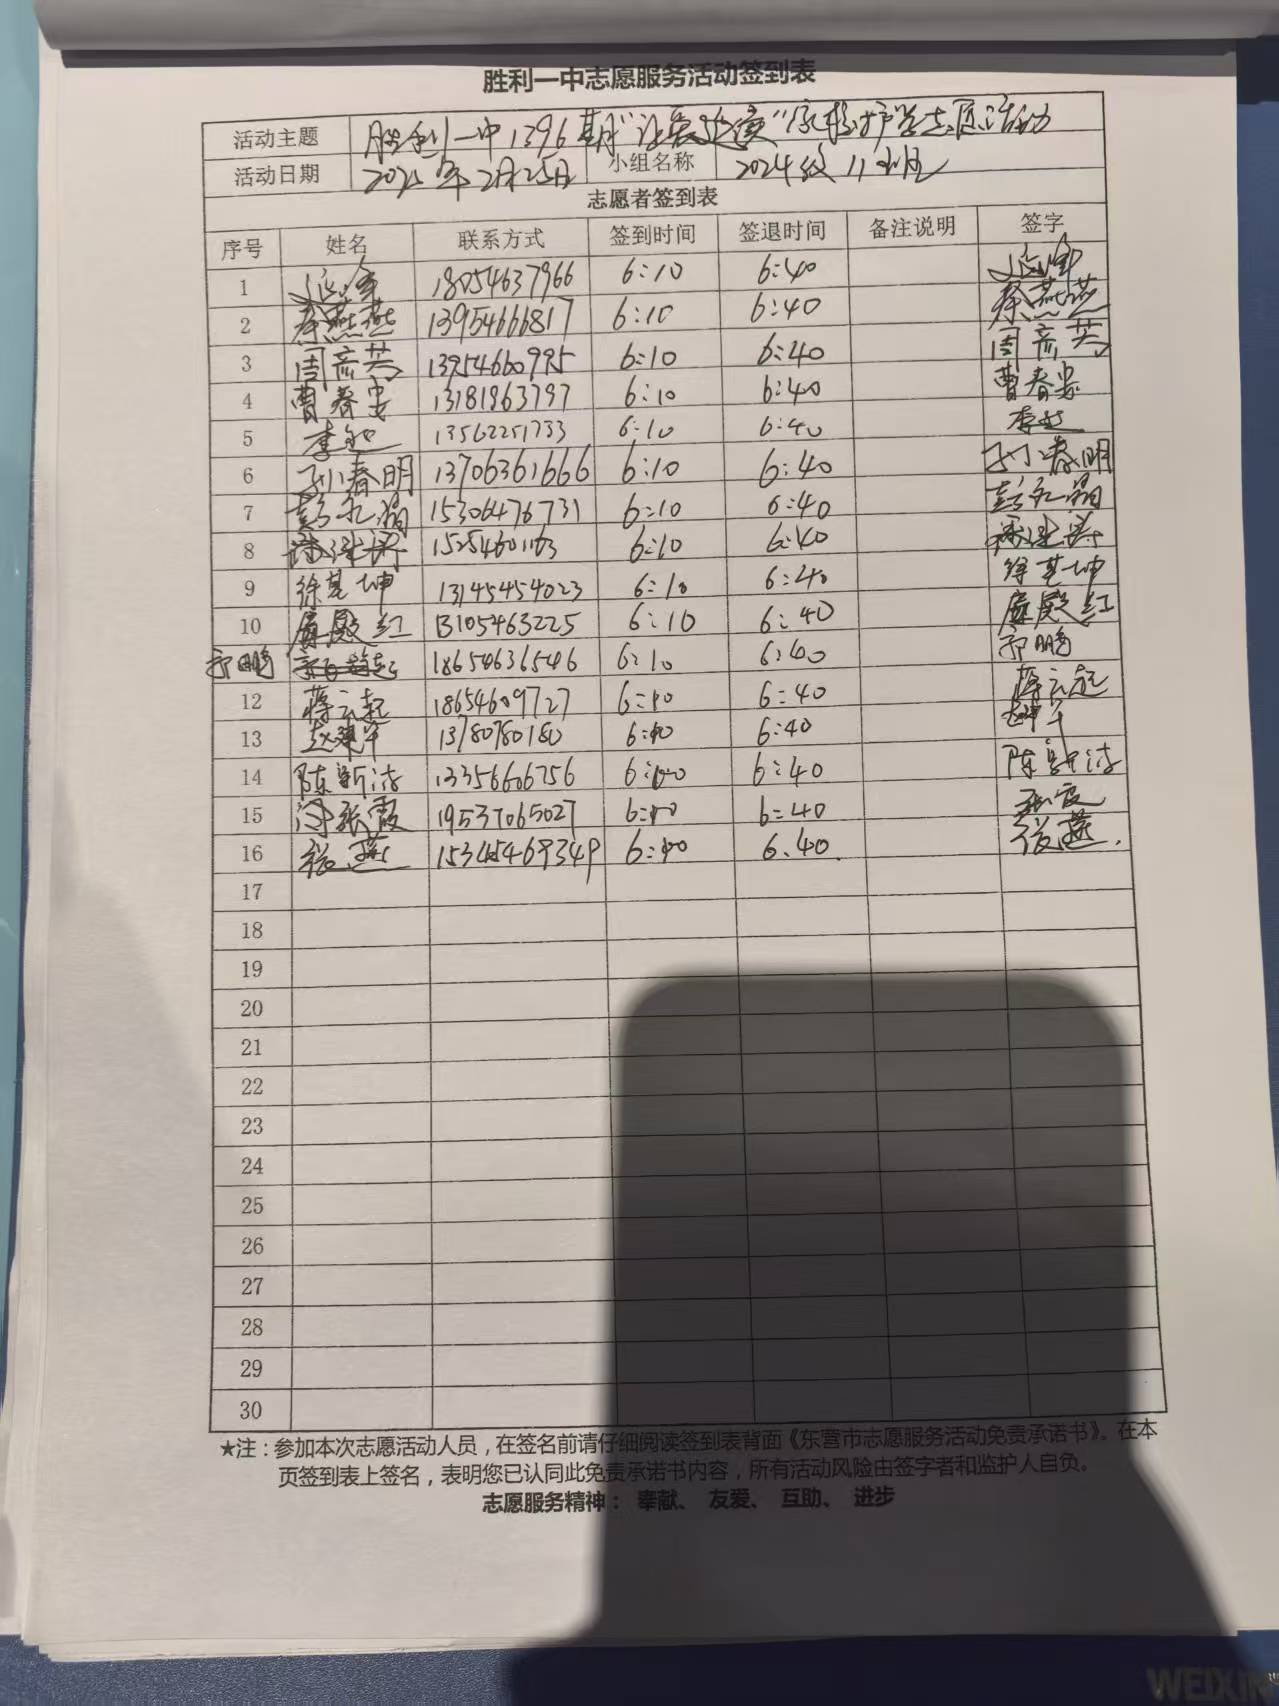 胜利一中志愿服务活动签到表
活动主题 胜利一中1396期"让爱延续"家校护学志愿活动
活动日期 2025年2月25日 小组名称 2024级11班
志愿者签到表
序号 姓名 联系方式 签到时间 签退时间 备注说明 签字
1 18054637966 6:10 6:40
2 秦燕燕 13954666817 6:10 6:40 秦燕燕
3 周彦芳 13954660995 6:10 6:40 周彦芳
4 曹春 13181863797 6:10 6:40 曹春
5 李 13562251733 6:10 6:40 李
6 孙春明 13706361666 6:10 6:40 孙春明
7 彭 15306476731 6:10 6:40 彭
8 15254601163 6:10 6:40
9 徐其坤 13145454023 6:10 6:40 徐其坤
10 殿红 13105463225 6:10 6:40 殿红
郭鹏 18654636546 6:10 6:40 郭鹏
12 蒋云起 18654609727 6:10 6:40 蒋云起
13 赵 13780780180 6:10 6:40
14 陈新涛 13356606756 6:10 6:40 陈新涛
15 张霞 19537065027 6:10 6:40 张霞
16 张燕 15345469349 6:10 6.40 张燕.
17
18
19
20
21
22
23
24
25
26
27
28
29
30
★注：参加本次志愿活动人员，在签名前请仔细阅读签到表背面《东营市志愿服务活动免责承诺书》。在本
页签到表上签名，表明您已认同此免责承诺书内容，所有活动风险由签字者和监护人自负。
志愿服务精神： 奉献、 友爱、 互助、 进步